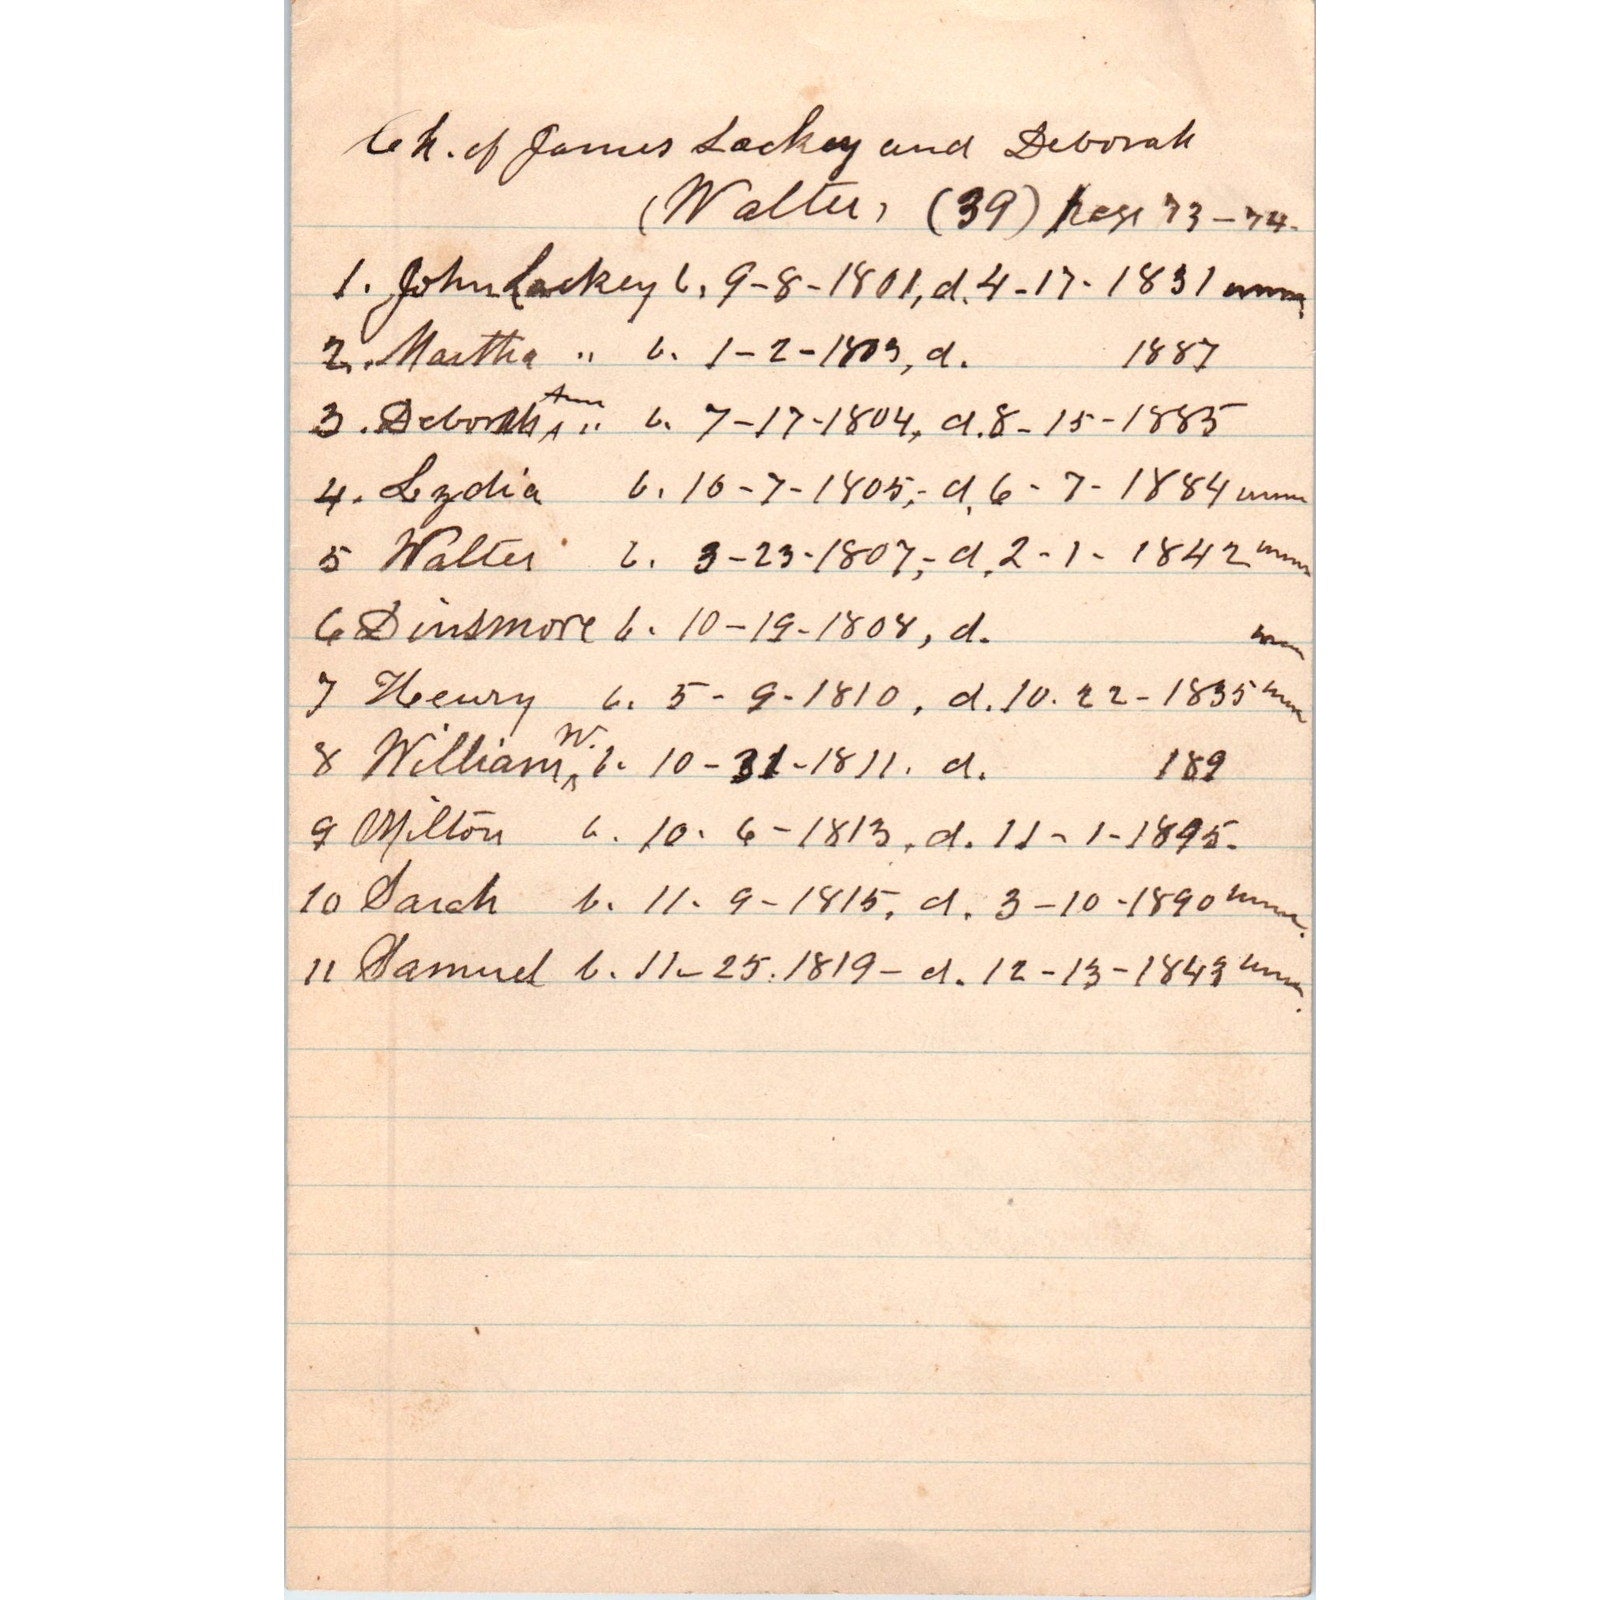 Ch. of James Lackey and Deborah
(Walter) (39) page 73-74.
1. John Lackey b. 9-8-1801, d. 4-17-1831 unm
2. Martha " b. 1-2-1803, d. 1887
3. Deborah Ann " b. 7-17-1804, d. 8-15-1885
4. Lydia b. 10-7-1805,- d. 6-7-1884 unm
5 Walter b. 3-23-1807,- d. 2-1-1842 unm
6 Dinsmore b. 10-19-1808, d. unm
7 Henry b. 5-9-1810, d. 10-22-1835 unm
8 William W. b. 10-31-1811. d. 189
9 Milton b. 10-6-1813, d. 11-1-1895.
10 Sarah b. 11-9-1815, d. 3-10-1890 unm.
11 Samuel b. 11-25-1819- d. 12-13-1843 unm.